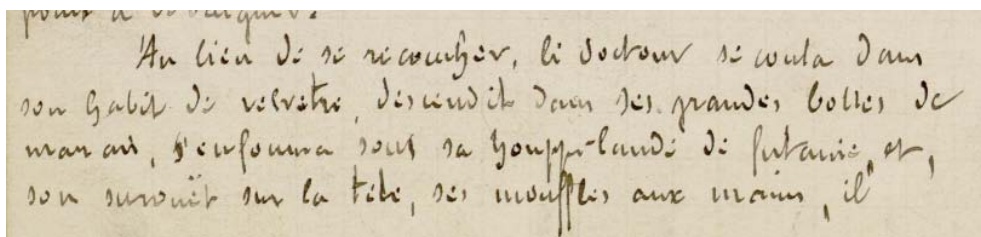 Au lieu de se recoucher, le docteur se coula dans
son habit de velvetre, descendit dans ses grandes bottes de
marais, s'enfourna sous sa houppe-lande de futaine, et,
son surouët sur la tête, ses mouffles aux mains, il